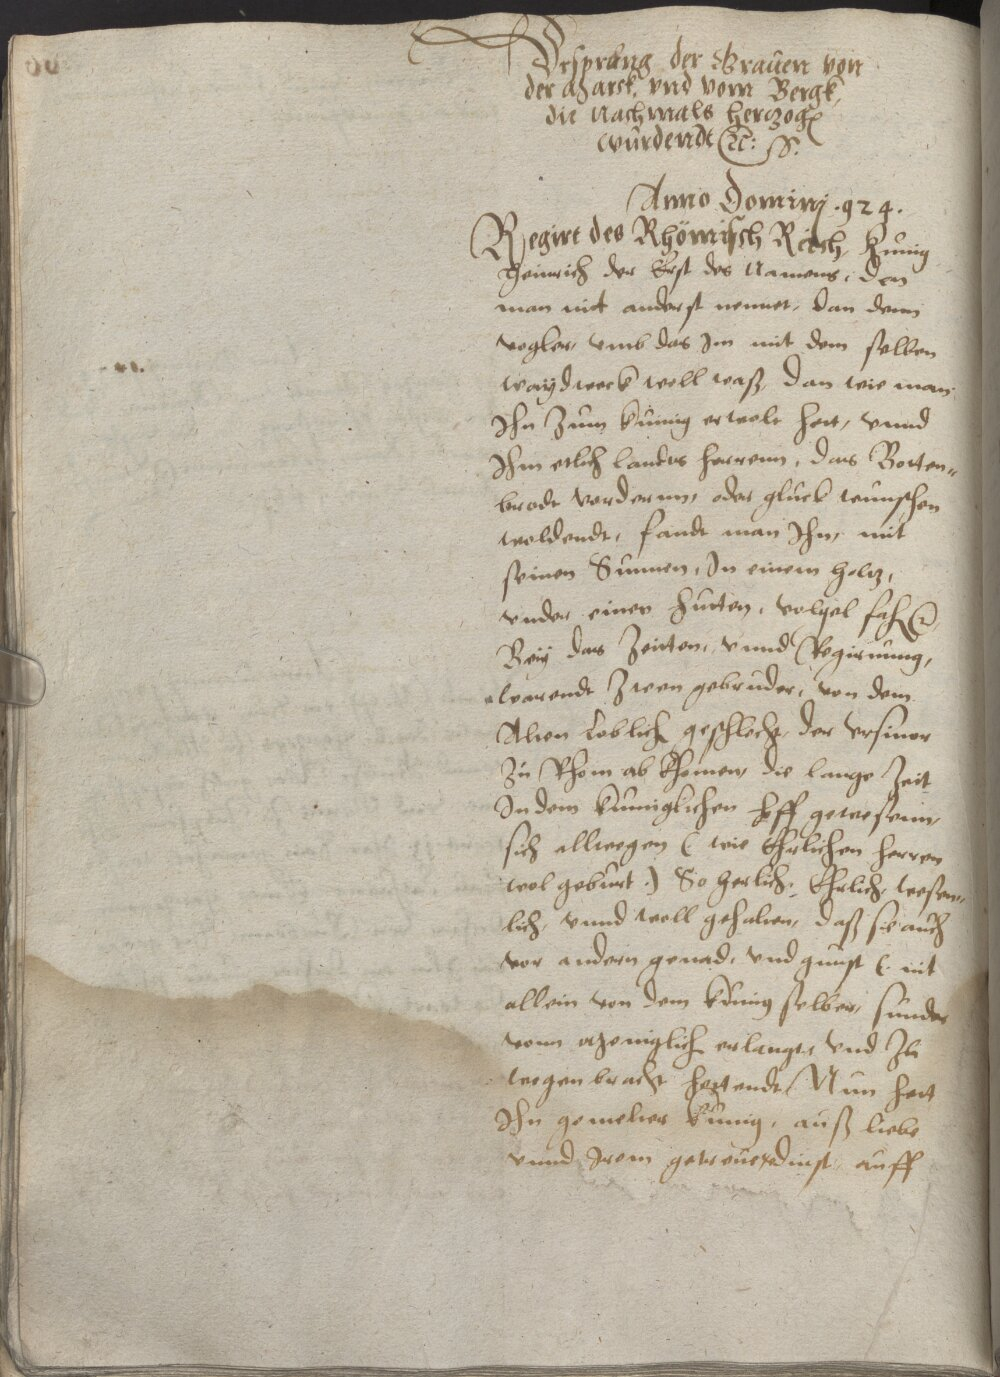 Ursprung der Grauen von
der Marck, vnd vom Bergk,
die nachmals hertzog
würdendt etc: ss.
Anno Dominj .924.
Regirt des Rhömisch Reich, Kunig
Heinrich der Erst des Namens, den
man nit anderst nennet, dan denn
vogler, vmb das Im mit dem selben
waydwerk woll waß, dan wie man
Ihn zum kunig erwelt hett, vnnd
Ihm etlich landts herrenn, das Botten-
brodt vordernn, oder gluck wunschen
woldendt, fandt man Ihn, mit
seinen Sunnen, In einem holtz,
vnder einer hutten, voegel
Beij das Zeitten, vnnd Regirung,
warendt zween gebruder, von dem
Alten loblich geschlecht, der vrsiner
zu Rhom ab khomen, die lange Zeit
In dem kuniglichen hoff gewesenn,
sich allwegen ( wie Ehrlichen herren
wol geburt.) So herlich, Ehrlich, wesen-
lich, vnnd woll gehalten, daß sie auch
vor andern genad, vnd gunst ( nit
allein von dem kunig selber, sunder
vonn meniglich erlangt, vnd zu
wegen bracht hettendt Nun hett
Ihn gemelter kunig, auß liebe
vnnd Irem getreuen dinst, auff